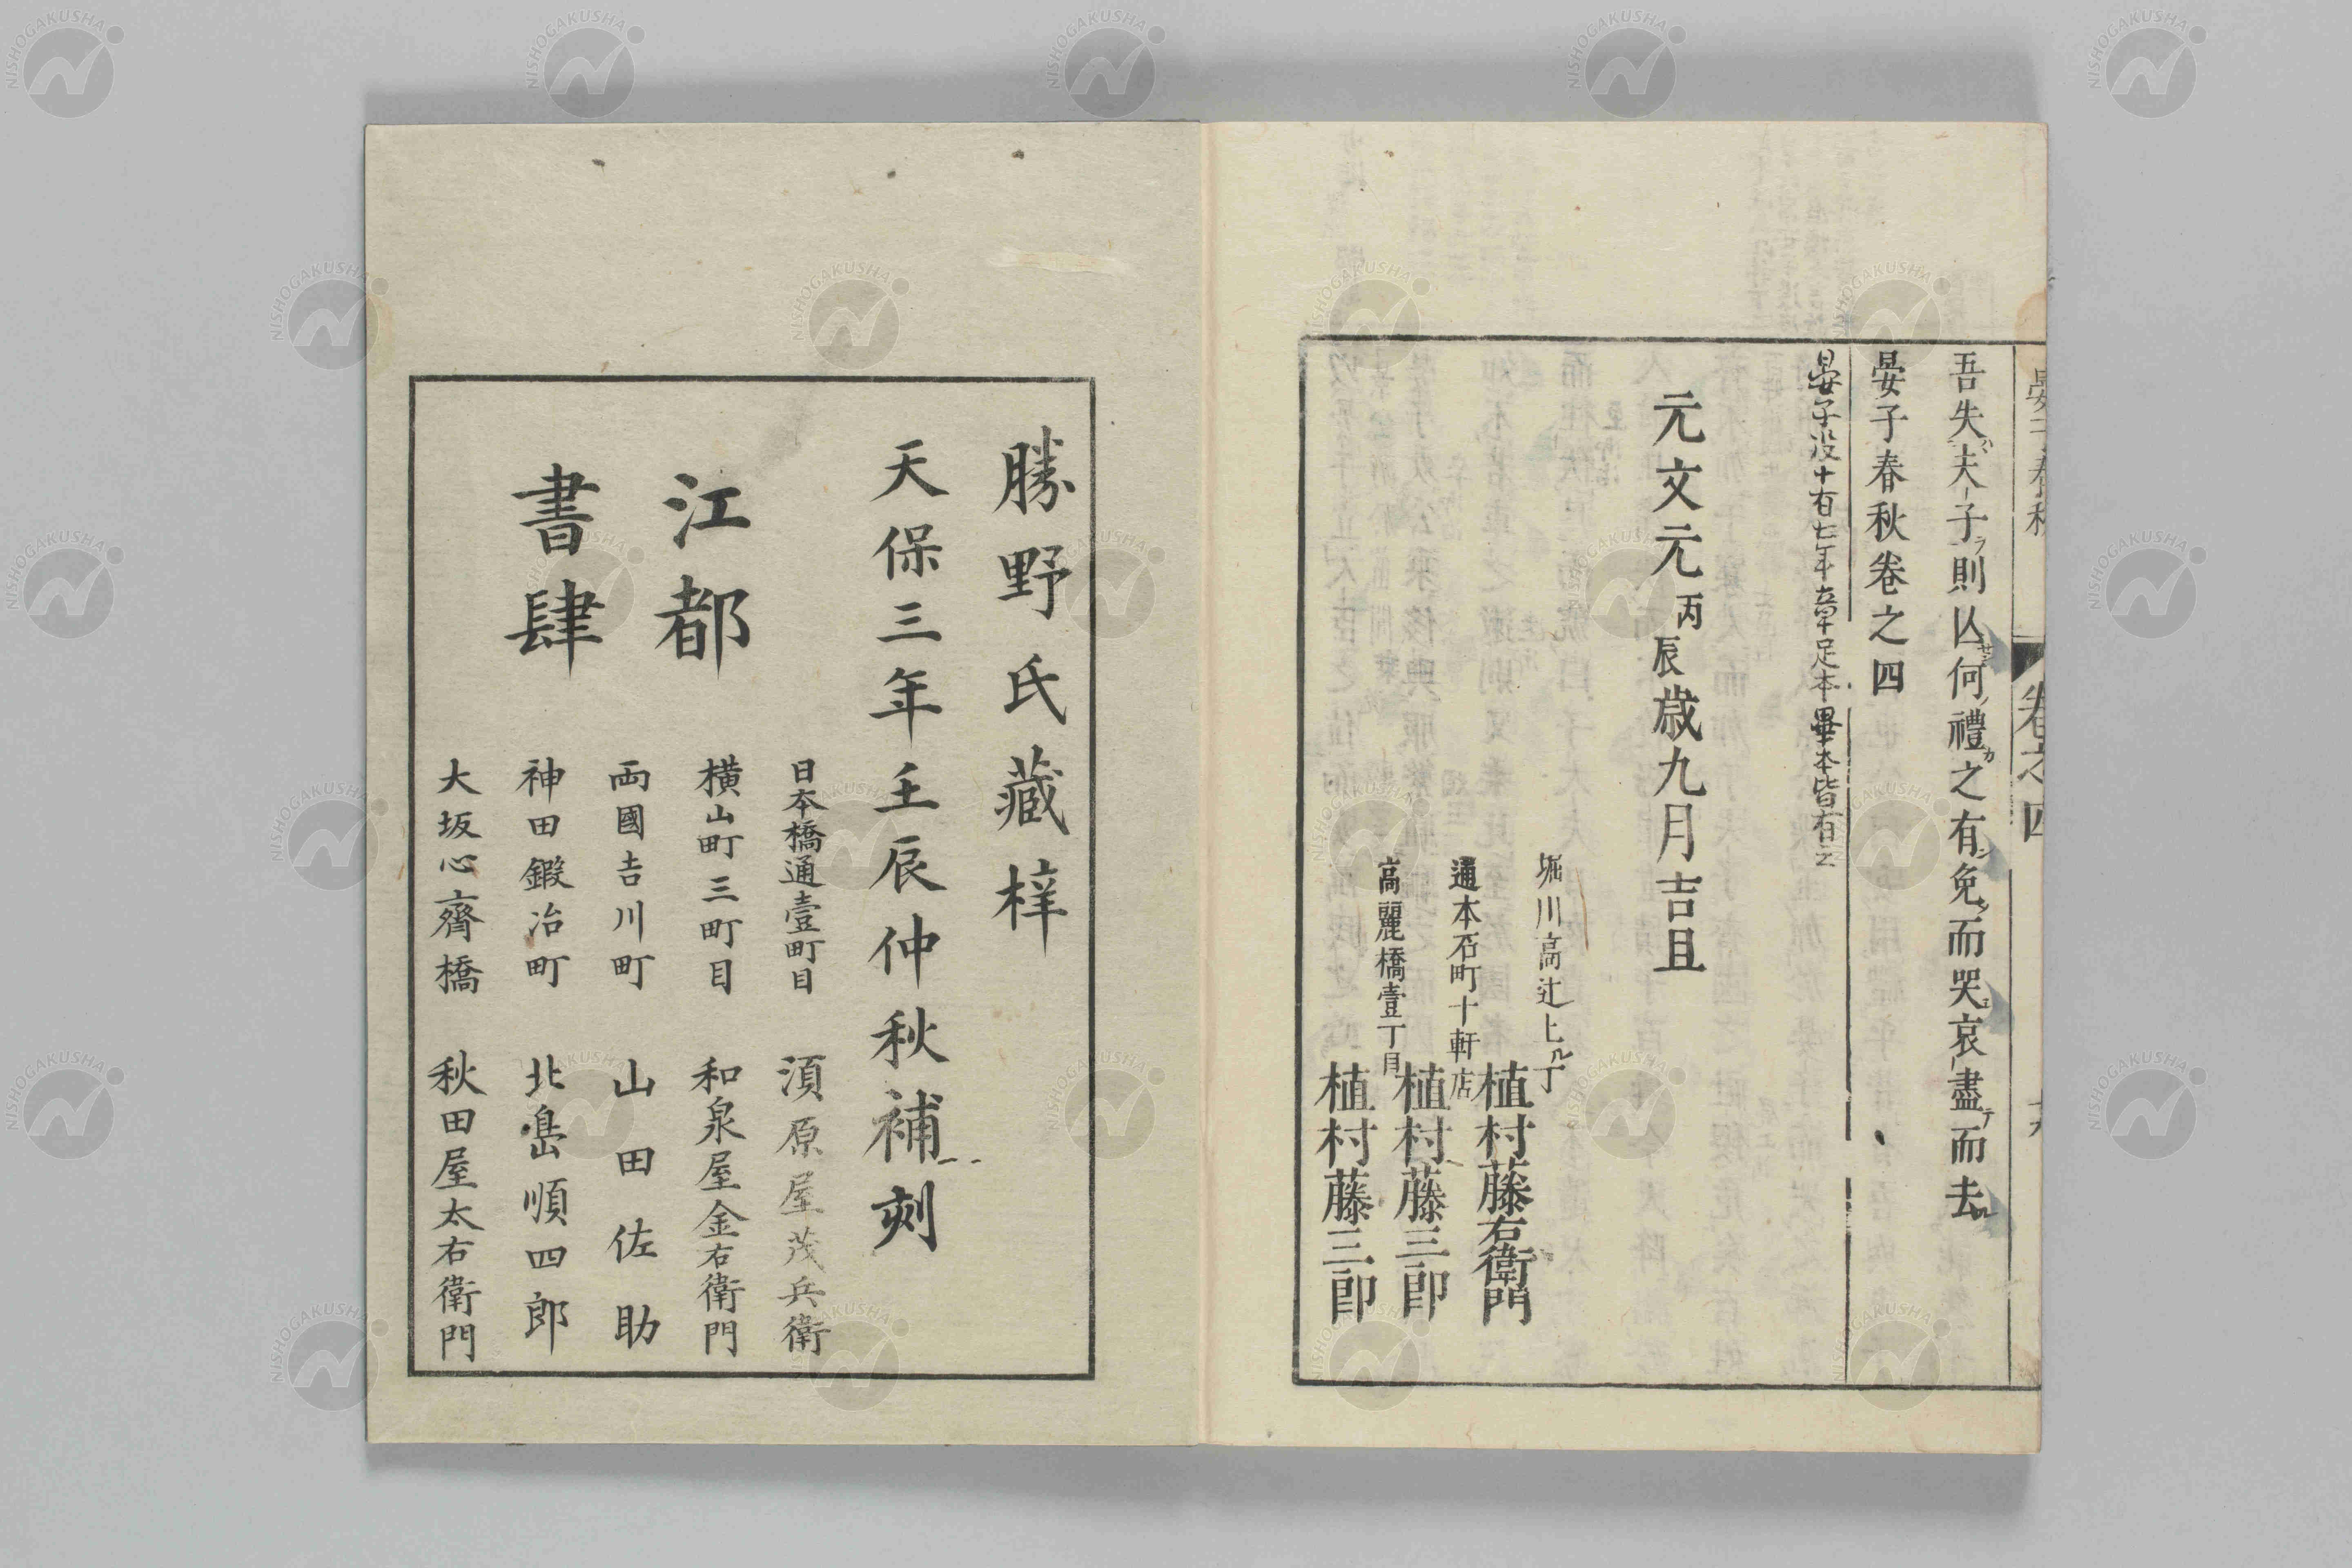 晏子春秋
卷之四
吾失夫子則亾何禮之有免而哭哀盡而去
晏子春秋卷之四
晏子没十有七年章足本畢本皆有之
元文元丙辰歳九月吉旦
堀川高辻上ル丁
植村藤右衛門
通本石町十軒店
植村藤三郎
高麗橋壹丁目
植村藤三郎
勝野氏藏梓
天保三年壬辰仲秋補刻
江都
書肆
日本橋通壹町目 湏原屋茂兵衛
横山町三町目 和泉屋金右衛門
両國吉川町 山田佐助
神田鍛冶町 北嶌順四郎
大坂心齊橋 秋田屋太右衛門
NISHOGAKUSHA